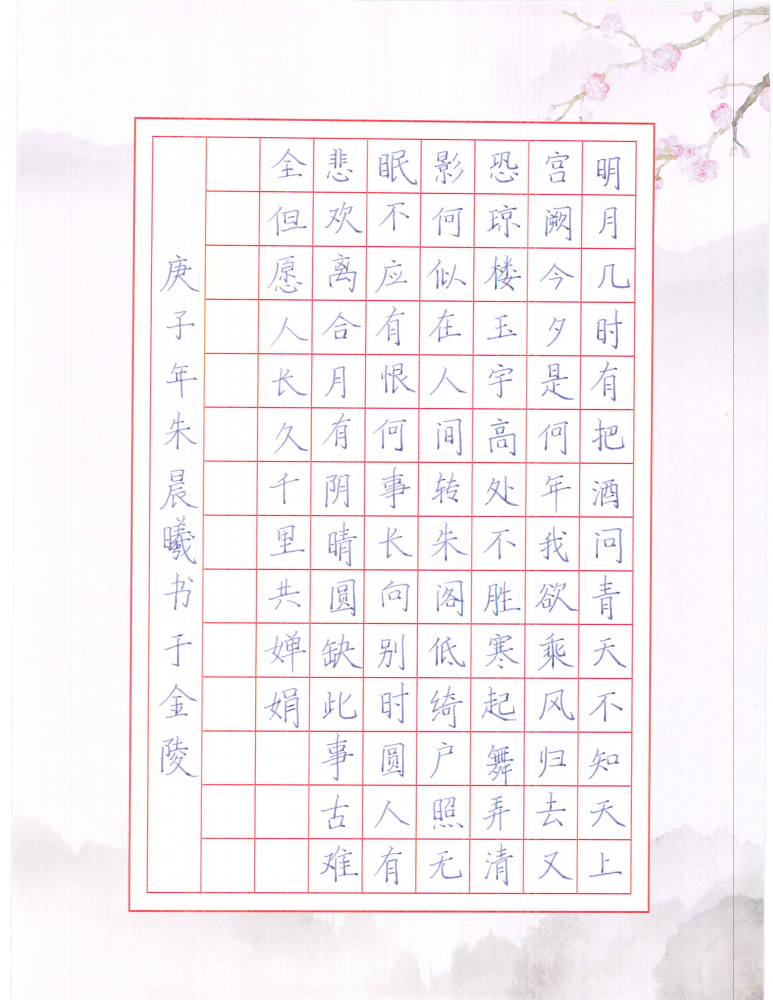 明月几时有把酒问青天不知天上
宫阙今夕是何年我欲乘风归去又
恐琼楼玉宇高处不胜寒起舞弄清
影何似在人间转朱阁低绮户照无
眠不应有恨何事长向别时圆人有
悲欢离合月有阴晴圆缺此事古难
全但愿人长久千里共婵娟
庚子年朱晨曦书于金陵